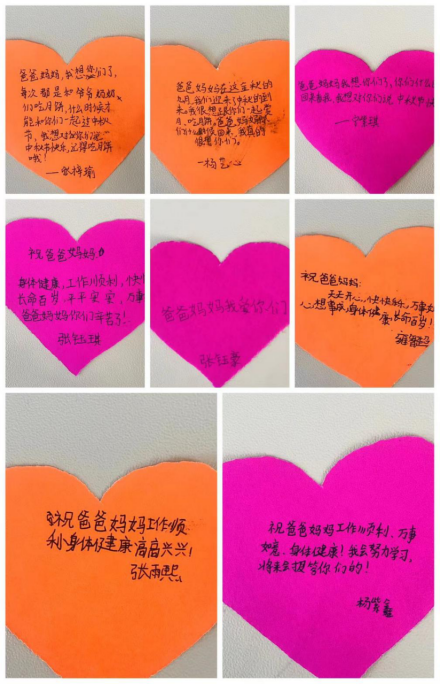 爸爸妈妈,我想你们了,
每次都是和爷爷奶奶
们吃月饼,什么时候才
能和你们一起过中秋
节,我想对你们说
中秋节快乐,记得吃月饼
哦!
爸爸妈妈在这立秋的
九月,我们迎来了中秋的到
来,我很想跟你们一起赏
月,吃月饼。爸爸妈妈
你们什么时候回来,我真的
很想你们。
爸爸妈妈我想你们了,你们
中秋节快
祝爸爸妈妈
身体健康,工作顺利,快
长命百岁,平平安安,万事
爸爸妈妈你们辛苦了!
爸爸妈妈我爱你们
祝爸爸妈妈:
天天开心,快快乐乐,万事如
心想事成,身体健康,长命百岁!
祝爸爸妈妈工作顺
利身体健康高高兴兴!
张雨熙
祝爸爸妈妈工作顺利、万事
如意、身体健康!我会努力学习,
将来会报答你们的!